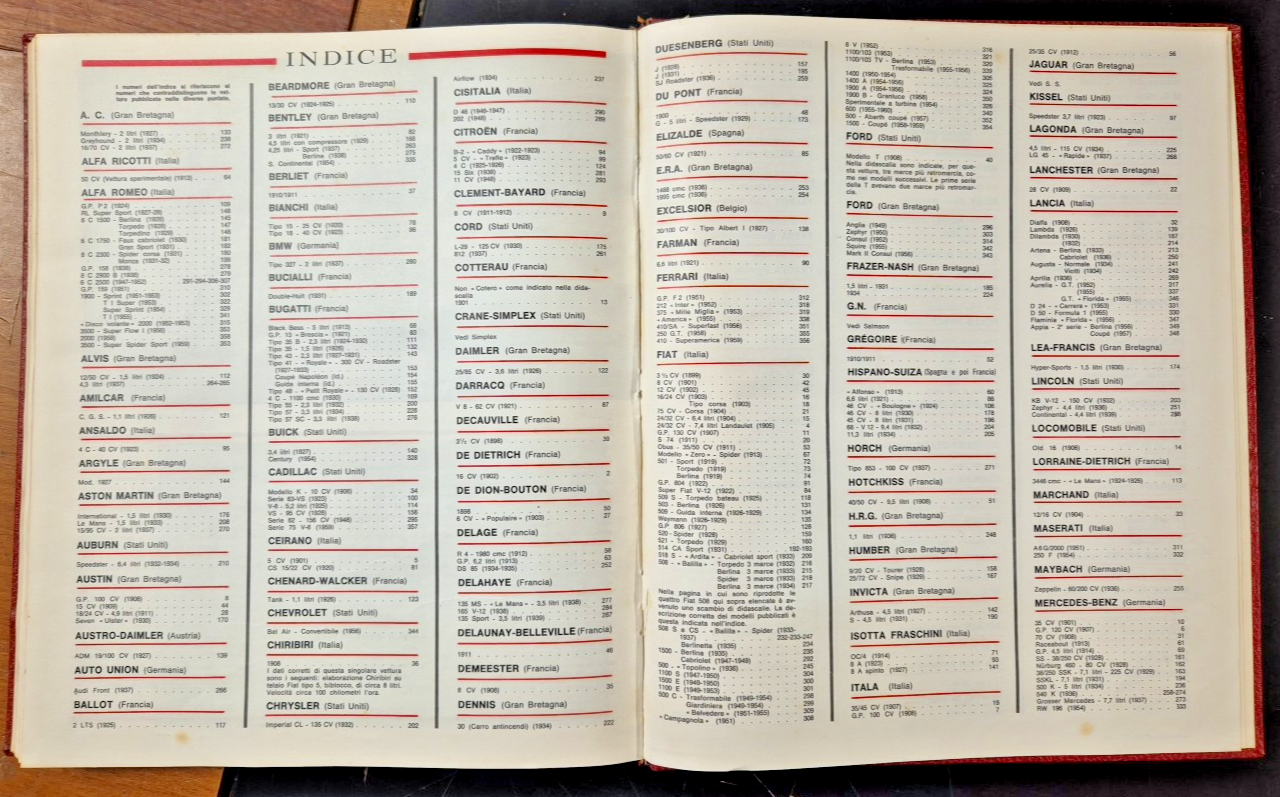 INDICE
I numeri dell'indice si riferiscono ai
numeri che contraddistinguono le vet-
ture pubblicate nelle diverse puntate.
A. C. (Gran Bretagna)
Monthlery - 2 litri (1927) 133
Greyhound - 2 litri (1934) 238
16/70 CV - 2 litri (1937) 272
ALFA RICOTTI (Italia)
50 CV (Vettura sperimentale) (1913) 64
ALFA ROMEO (Italia)
G.P. P 2 (1924) 109
RL Super Sport (1927-28) 148
6 C 1500 - Berlina (1928) 145
Torpedo (1928) 147
Torpedino (1929) 148
6 C 1750 - Faux cabriolet (1930) 181
Gran Sport (1931) 182
8 C 2300 - Spider corsa (1931) 190
Monza (1931-32) 199
G.P. 158 (1938) 278
8 C 2900 B (1938) 279
6 C 2500 (1947-1952) 291-294-306-307
G.P. 159 (1951) 310
1900 - Sprint (1951-1953) 302
T I Super (1953) 322
Super Sprint (1954) 329
T I (1955) 341
« Disco volante » 2000 (1952-1953) 315
3500 - Super Flow I (1956) 353
2000 (1958) 358
3500 - Super Spider Sport (1959) 353
ALVIS (Gran Bretagna)
12/50 CV - 1,5 litri (1924) 112
4,3 litri (1937) 264-265
AMILCAR (Francia)
C. G. S. - 1,1 litri (1926) 121
ANSALDO (Italia)
4 C - 40 CV (1923) 95
ARGYLE (Gran Bretagna)
Mod. 1927 144
ASTON MARTIN (Gran Bretagna)
International - 1,5 litri (1930) 176
Le Mans - 1,5 litri (1933) 208
15/95 CV - 2 litri (1937) 270
AUBURN (Stati Uniti)
Speedster - 6,4 litri (1932-1934) 210
AUSTIN (Gran Bretagna)
G.P. 100 CV (1908) 8
15 CV (1909) 44
18/24 CV - 4,9 litri (1911) 28
Seven « Ulster » (1930) 170
AUSTRO-DAIMLER (Austria)
ADM 19/100 CV (1927) 139
AUTO UNION (Germania)
Audi Front (1937) 266
BALLOT (Francia)
2 LTS (1925) 117
BEARDMORE (Gran Bretagna)
13/30 CV (1924-1925) 110
BENTLEY (Gran Bretagna)
3 litri (1921) 82
4,5 litri con compressore (1929) 168
4,25 litri - Sport (1937) 263
Berlina (1938) 275
S. Continental (1954) 335
BERLIET (Francia)
1910/1911 37
BIANCHI (Italia)
Tipo 15 - 25 CV (1920) 78
Tipo 18 - 40 CV (1923) 96
BMW (Germania)
Tipo 327 - 2 litri (1937) 260
BUCIALLI (Francia)
Double-Huit (1931) 189
BUGATTI (Francia)
Black Bess - 5 litri (1913) 68
G.P. 13 « Brescia » (1921) 83
Tipo 35 B - 2,3 litri (1924-1930) 111
Tipo 35 - 1,5 litri (1926) 132
Tipo 43 - 2,3 litri (1927-1931) 143
Tipo 41 - « Royale » - 300 CV - Roadster
(1927-1933) 153
Coupé Napoléon (id.) 154
Guida interna (id.) 155
Tipo 46 - « Petit Royale » - 130 CV (1928) 152
4 C - 1100 cmc (1930) 169
Tipo 55 - 2,3 litri (1932) 200
Tipo 57 - 3,3 litri (1934) 228
Tipo 57 SC - 3,3 litri (1938) 276
BUICK (Stati Uniti)
3,4 litri (1927) 140
Century (1954) 328
CADILLAC (Stati Uniti)
Modello K - 10 CV (1906) 34
Serie 63-V8 (1923) 100
V-8 - 5,2 litri (1925) 114
V8 - 95 CV (1928) 156
Serie 62 - 156 CV (1948) 295
Serie 75 V-8 (1959) 357
CEIRANO (Italia)
5 CV (1901) 5
CS 15/22 CV (1920) 81
CHENARD-WALCKER (Francia)
Tank - 1,1 litri (1926) 123
CHEVROLET (Stati Uniti)
Bel Air - Convertibile (1956) 344
CHIRIBIRI (Italia)
1908 36
I dati corretti di questa singolare vettura
sono i seguenti: elaborazione Chiribiri su
telaio Fiat tipo 5, biblocco, di circa 8 litri.
Velocità circa 100 chilometri l'ora.
CHRYSLER (Stati Uniti)
Imperial CL - 135 CV (1932) 202
Airflow (1934) 237
CISITALIA (Italia)
D 46 (1946-1947) 290
202 (1948) 289
CITROËN (Francia)
B-2 - « Caddy » (1922-1923) 94
5 CV - « Trefle » (1923) 99
4 C (1925-1926) 124
15 Six (1938) 281
11 CV (1948) 293
CLEMENT-BAYARD (Francia)
8 CV (1911-1912) 9
CORD (Stati Uniti)
L-29 - 125 CV (1930) 175
812 (1937) 261
COTTERAU (Francia)
Non « Cotero » come indicato nella dida-
scalia
1901 13
CRANE-SIMPLEX (Stati Uniti)
Vedi Simplex
DAIMLER (Gran Bretagna)
25/85 CV - 3,6 litri (1926) 122
DARRACQ (Francia)
V 8 - 62 CV (1921) 87
DECAUVILLE (Francia)
3½ CV (1898) 39
DE DIETRICH (Francia)
16 CV (1902) 2
DE DION-BOUTON (Francia)
1898 50
6 CV - « Populaire » (1903) 27
DELAGE (Francia)
R 4 - 1980 cmc (1912) 58
G.P. 6,2 litri (1913) 63
DS 85 (1934-1935) 252
DELAHAYE (Francia)
135 MS - « Le Mans » - 3,5 litri (1938) 277
165 V-12 (1938) 284
135 Sport - 3,5 litri (1939) 287
DELAUNAY-BELLEVILLE (Francia)
1911 46
DEMEESTER (Francia)
8 CV (1908) 35
DENNIS (Gran Bretagna)
30 (Carro antincendi) (1934) 222
DUESENBERG (Stati Uniti)
J (1928) 157
J (1931) 195
SJ Roadster (1936) 259
DU PONT (Francia)
1900 48
G - 5 litri - Speedster (1929) 173
ELIZALDE (Spagna)
50/60 CV (1921) 85
E.R.A. (Gran Bretagna)
1488 cmc (1936) 253
1995 cmc (1936) 254
EXCELSIOR (Belgio)
30/100 CV - Tipo Albert I (1927) 138
FARMAN (Francia)
6,6 litri (1921) 90
FERRARI (Italia)
G.P. F 2 (1951) 312
212 « Inter » (1952) 318
375 « Mille Miglia » (1953) 319
« America » (1955) 338
410/SA - Superfast (1956) 351
250 G.T. (1958) 355
410 - Superamerica (1959) 356
FIAT (Italia)
3 ½ CV (1899) 30
8 CV (1901) 42
12 CV (1902) 45
16/24 CV (1903) 16
Tipo corsa (1903) 18
75 CV - Corsa (1904) 21
24/32 CV - 6,4 litri (1904) 15
24/32 CV - 7,4 Landaulet (1905) 4
G.P. 130 CV (1907) 11
S 74 (1911) 20
Obus - 35/50 CV (1911) 53
Modello « Zero » - Spider (1913) 67
501 - Sport (1919) 72
Torpedo (1919) 73
Berlina (1919) 74
G.P. 804 (1922) 91
Super Fiat V-12 (1922) 84
509 S - Torpedo bateau (1925) 118
503 - Berlina (1926) 131
509 - Guida interna (1926-1929) 134
Weymann (1926-1929) 135
G.P. 806 (1927) 128
520 - Spider (1928) 159
521 - Torpedo (1929) 160
514 CA Sport (1931) 192-193
518 S - « Ardita » - Cabriolet sport (1933) 209
508 - « Balilla » - Torpedo 3 marce (1932) 216
Berlina 3 marce (1933) 215
Spider 3 marce (1933) 218
Berlina 3 marce (1934) 217
Nella pagina in cui sono riprodotte le
quattro Fiat 508 qui sopra elencate è av-
venuto uno scambio di didascalie. La de-
scrizione corretta dei modelli pubblicati è
questa indicata nell'indice.
508 S e CS - « Balilla » - Spider (1933-
1937) 232-233-247
Berlinetta (1935) 234
1500 - Berlina (1935) 235
Cabriolet (1947-1949) 292
500 - « Topolino » (1936) 245
1100 S (1947-1950) 304
1500 E (1949-1950) 300
1100 E (1949-1953) 301
500 C - Trasformabile (1949-1954) 298
Giardiniera (1949-1954) 299
« Belvedere » (1951-1955) 309
« Campagnola » (1951) 308
8 V (1952) 316
1100/103 (1953) 321
1100/103 TV - Berlina (1953) 320
Trasformabile (1955-1956) 339
1400 (1950-1954) 305
1400 A (1954-1956) 325
1900 A (1954-1956) 324
1900 B - Granluce (1958) 350
Sperimentale a turbina (1954) 326
600 (1955-1960) 340
500 - Abarth coupé (1957) 352
1500 - Coupé (1958-1959) 354
FORD (Stati Uniti)
Modello T (1908) 40
Nella didascalia sono indicate, per que-
sta vettura, tre marce più retromarcia, co-
me nei modelli successivi. Le prime serie
della T avevano due marce più retromar-
cia.
FORD (Gran Bretagna)
Anglia (1949) 296
Zephyr (1950) 303
Consul (1952) 314
Squire (1955) 342
Mark II Consul (1956) 343
FRAZER-NASH (Gran Bretagna)
1,5 litri - 1931 185
1934 224
G.N. (Francia)
Vedi Salmson
GRÉGOIRE (Francia)
1910/1911 52
HISPANO-SUIZA (Spagna e poi Francia)
« Alfonso » (1913) 60
6,6 litri (1921) 86
46 CV - « Boulogne » (1924) 106
46 CV - 8 litri (1930) 178
46 CV - 8 litri (1931) 196
68 - V 12 - 9,4 litri (1932) 204
11,3 litri (1934) 205
HORCH (Germania)
Tipo 853 - 100 CV (1937) 271
HOTCHKISS (Francia)
40/50 CV - 9,5 litri (1908) 51
H.R.G. (Gran Bretagna)
1,1 litri (1936) 248
HUMBER (Gran Bretagna)
9/20 CV - Tourer (1928) 158
25/72 CV - Snipe (1929) 167
INVICTA (Gran Bretagna)
Arthusa - 4,5 litri (1927) 142
S - 4,5 litri (1931) 190
ISOTTA FRASCHINI (Italia)
OC/4 (1914) 71
8 A (1923) 93
8 A spinto (1927) 141
ITALA (Italia)
35/45 CV (1907) 19
G.P. 100 CV (1908) 7
25/35 CV (1912) 56
JAGUAR (Gran Bretagna)
Vedi S. S.
KISSEL (Stati Uniti)
Speedster 3,7 litri (1923) 97
LAGONDA (Gran Bretagna)
4,5 litri - 115 CV (1934) 225
LG 45 - « Rapide » (1937) 268
LANCHESTER (Gran Bretagna)
28 CV (1909) 22
LANCIA (Italia)
Dialfa (1908) 32
Lambda (1926) 139
Dilambda (1930) 187
(1932) 214
Artena - Berlina (1933) 213
Cabriolet (1936) 250
Augusta - Normale (1934) 241
Viotti (1934) 242
Aprilia (1936) 269
Aurelia - G.T. (1952) 317
(1955) 337
G.T. « Florida » (1955) 346
D 24 - « Carrera » (1953) 331
D 50 - Formula 1 (1955) 330
Flaminia « Florida » (1956) 347
Appia - 2ª serie - Berlina (1956) 349
Coupé (1957) 348
LEA-FRANCIS (Gran Bretagna)
Hyper-Sports - 1,5 litri (1930) 174
LINCOLN (Stati Uniti)
KB V-12 - 150 CV (1932) 203
Zephyr - 4,4 litri (1936) 251
Continental - 4,4 litri (1939) 286
LOCOMOBILE (Stati Uniti)
Old 16 (1906) 14
LORRAINE-DIETRICH (Francia)
3446 cmc - « Le Mans » (1924-1926) 113
MARCHAND (Italia)
12/16 CV (1904) 33
MASERATI (Italia)
A 6 G/2000 (1951) 311
250 F (1954) 332
MAYBACH (Germania)
Zeppelin - 60/200 CV (1936) 255
MERCEDES-BENZ (Germania)
35 CV (1901) 10
G.P. 120 CV (1907) 6
70 CV (1908) 31
Raceabout (1913) 61
G.P. 4,5 litri (1914) 69
SS - 38/250 CV (1928) 161
Nürburg 460 - 80 CV (1928) 162
38/250 SSK - 7,1 litri - 225 CV (1929) 163
SSKL - 7,1 litri (1931) 194
500 K - 5 litri (1934) 236
540 K (1936) 258-274
Grosser Mercedes - 7,7 litri (1937) 273
RW 196 (1954) 333